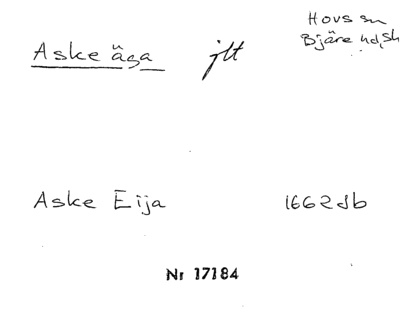 Hovs sn
Aske äga jlt Bjäre hd, Sk
Aske Eija 1662 Jb
Nr 17184